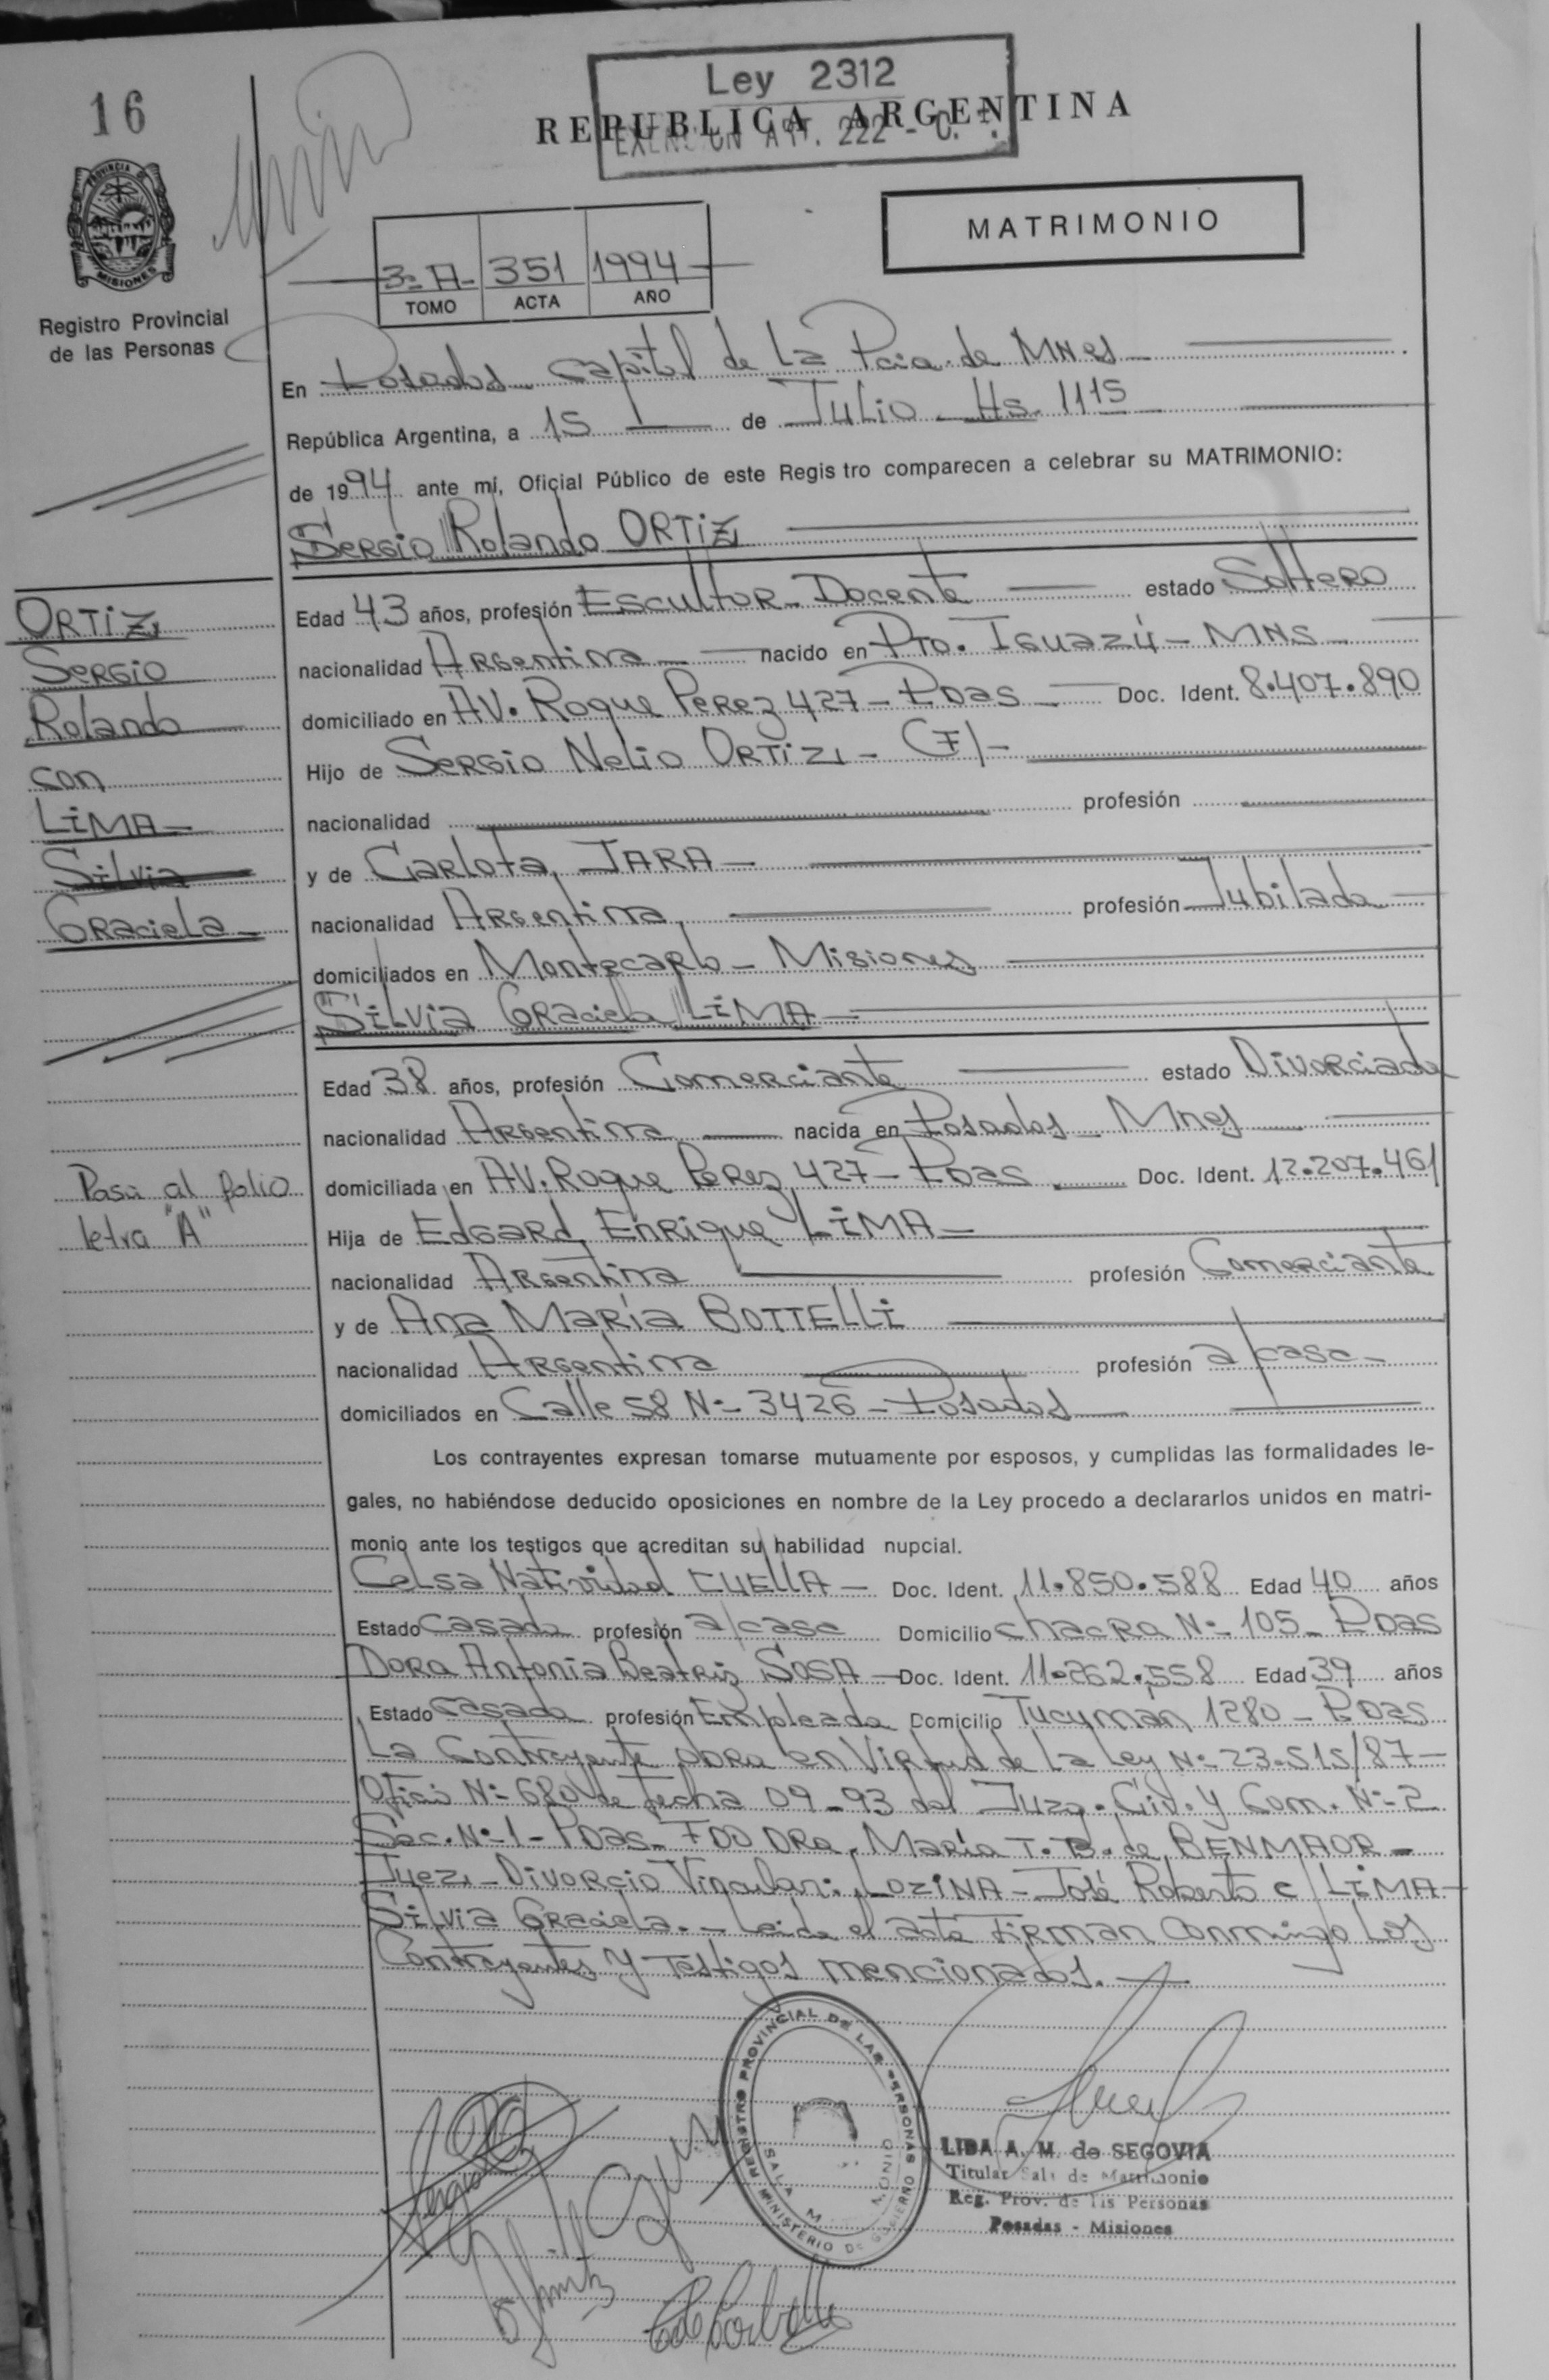 16
Ley 2312
REPUBLICA ARGENTINA
EXENCION ART. 222 - C. T.
PROVINCIA DE
MISIONES
Registro Provincial
de las Personas
MATRIMONIO
3º A- 351 1994
TOMO ACTA AÑO
En Posadas Capital de La Pcia. de MNes
República Argentina, a 15 de Julio Hs. 1115
de 1994 ante mí, Oficial Público de este Regis tro comparecen a celebrar su MATRIMONIO:
Sergio Rolando ORTIZ
Edad 43 años, profesión Escultor - Docente estado Soltero
nacionalidad Argentina nacido en Pto. Iguazú - MNS
domiciliado en AV. Roque Perez 427 - Pdas Doc. Ident. 8.407.890
Hijo de Sergio Nelio ORTIZ - (F)
nacionalidad profesión
y de Carlota JARA
nacionalidad Argentina profesión Jubilada
domiciliados en Montecarlo - Misiones
Silvia Graciela LIMA
Edad 38 años, profesión Comerciante estado Divorciada
nacionalidad Argentina nacida en Posadas - Mnes
domiciliada en AV. Roque Perez 427 - Pdas Doc. Ident. 12.207.461
Hija de Edgard Enrique LIMA
nacionalidad Argentina profesión Comerciante
y de Ana María BOTTELLI
nacionalidad Argentina profesión a/casa
domiciliados en Calle 58 Nº 3426 - Posadas
Los contrayentes expresan tomarse mutuamente por esposos, y cumplidas las formalidades le-
gales, no habiéndose deducido oposiciones en nombre de la Ley procedo a declararlos unidos en matri-
monio ante los testigos que acreditan su habilidad nupcial.
Celsa Natividad CUELLA Doc. Ident. 11.850.588 Edad 40 años
Estado Casada profesión a/casa Domicilio Chacra Nº 105 - Pdas
Dora Antonia Beatriz SOSA Doc. Ident. 11.262.558 Edad 39 años
Estado Casada profesión Empleada Domicilio Tucumán 1280 - Pdas
La Contrayente obra en Virtud de la Ley Nº 23.515/87 -
Oficio Nº 680 de fecha 09-93 del Juzg. Civ. y Com. Nº 2
Sec. Nº 1 - Pdas - FDO DRA. María T. B. de BENMAOR -
Juez - Divorcio Vincular: LOZINA - José Roberto c/ LIMA
Silvia Graciela. - Leida el acta firman conmigo los
Contrayentes y Testigos mencionados.
ORTIZ
Sergio
Rolando
con
LIMA
Silvia
Graciela
Pasa al folio
letra "A"
REGISTRO PROVINCIAL DE LAS PERSONAS
MINISTERIO DE GOBIERNO
LIDA A. M. de SEGOVIA
Titular Sala de Matrimonio
Reg. Prov. de las Personas
Posadas - Misiones